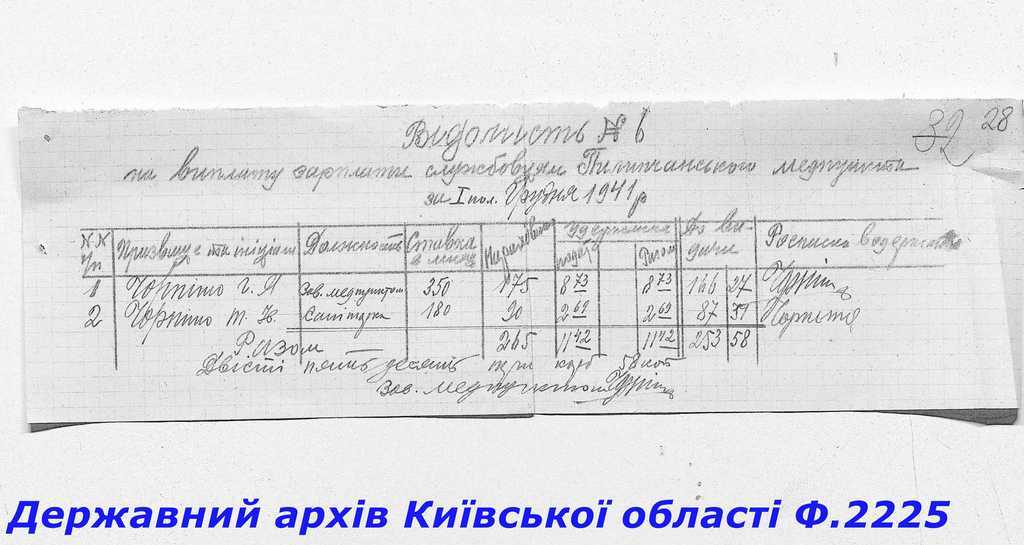 32 28
Видомисть № 6
на виплату зарплати службовцям Пилипчанського медпункта
за I пол. Грудня 1941 р
NN п/п Призвище та інціали Должность Ставка в місяц Нараховано Удержання До видачи Росписка в одержанні
подат Разом
1 Чорпино Г. Я Зав. медпунктом 350 175 8 73 8 73 166 27
2 Чорпино Т. К. Санітарка 180 90 2 69 2 69 87 31
Разом 265 11 42 11 42 253 58
Двісті пятьдесять три карб 58 коп
Зав. медпунктом
Державний архів Київської області Ф.2225